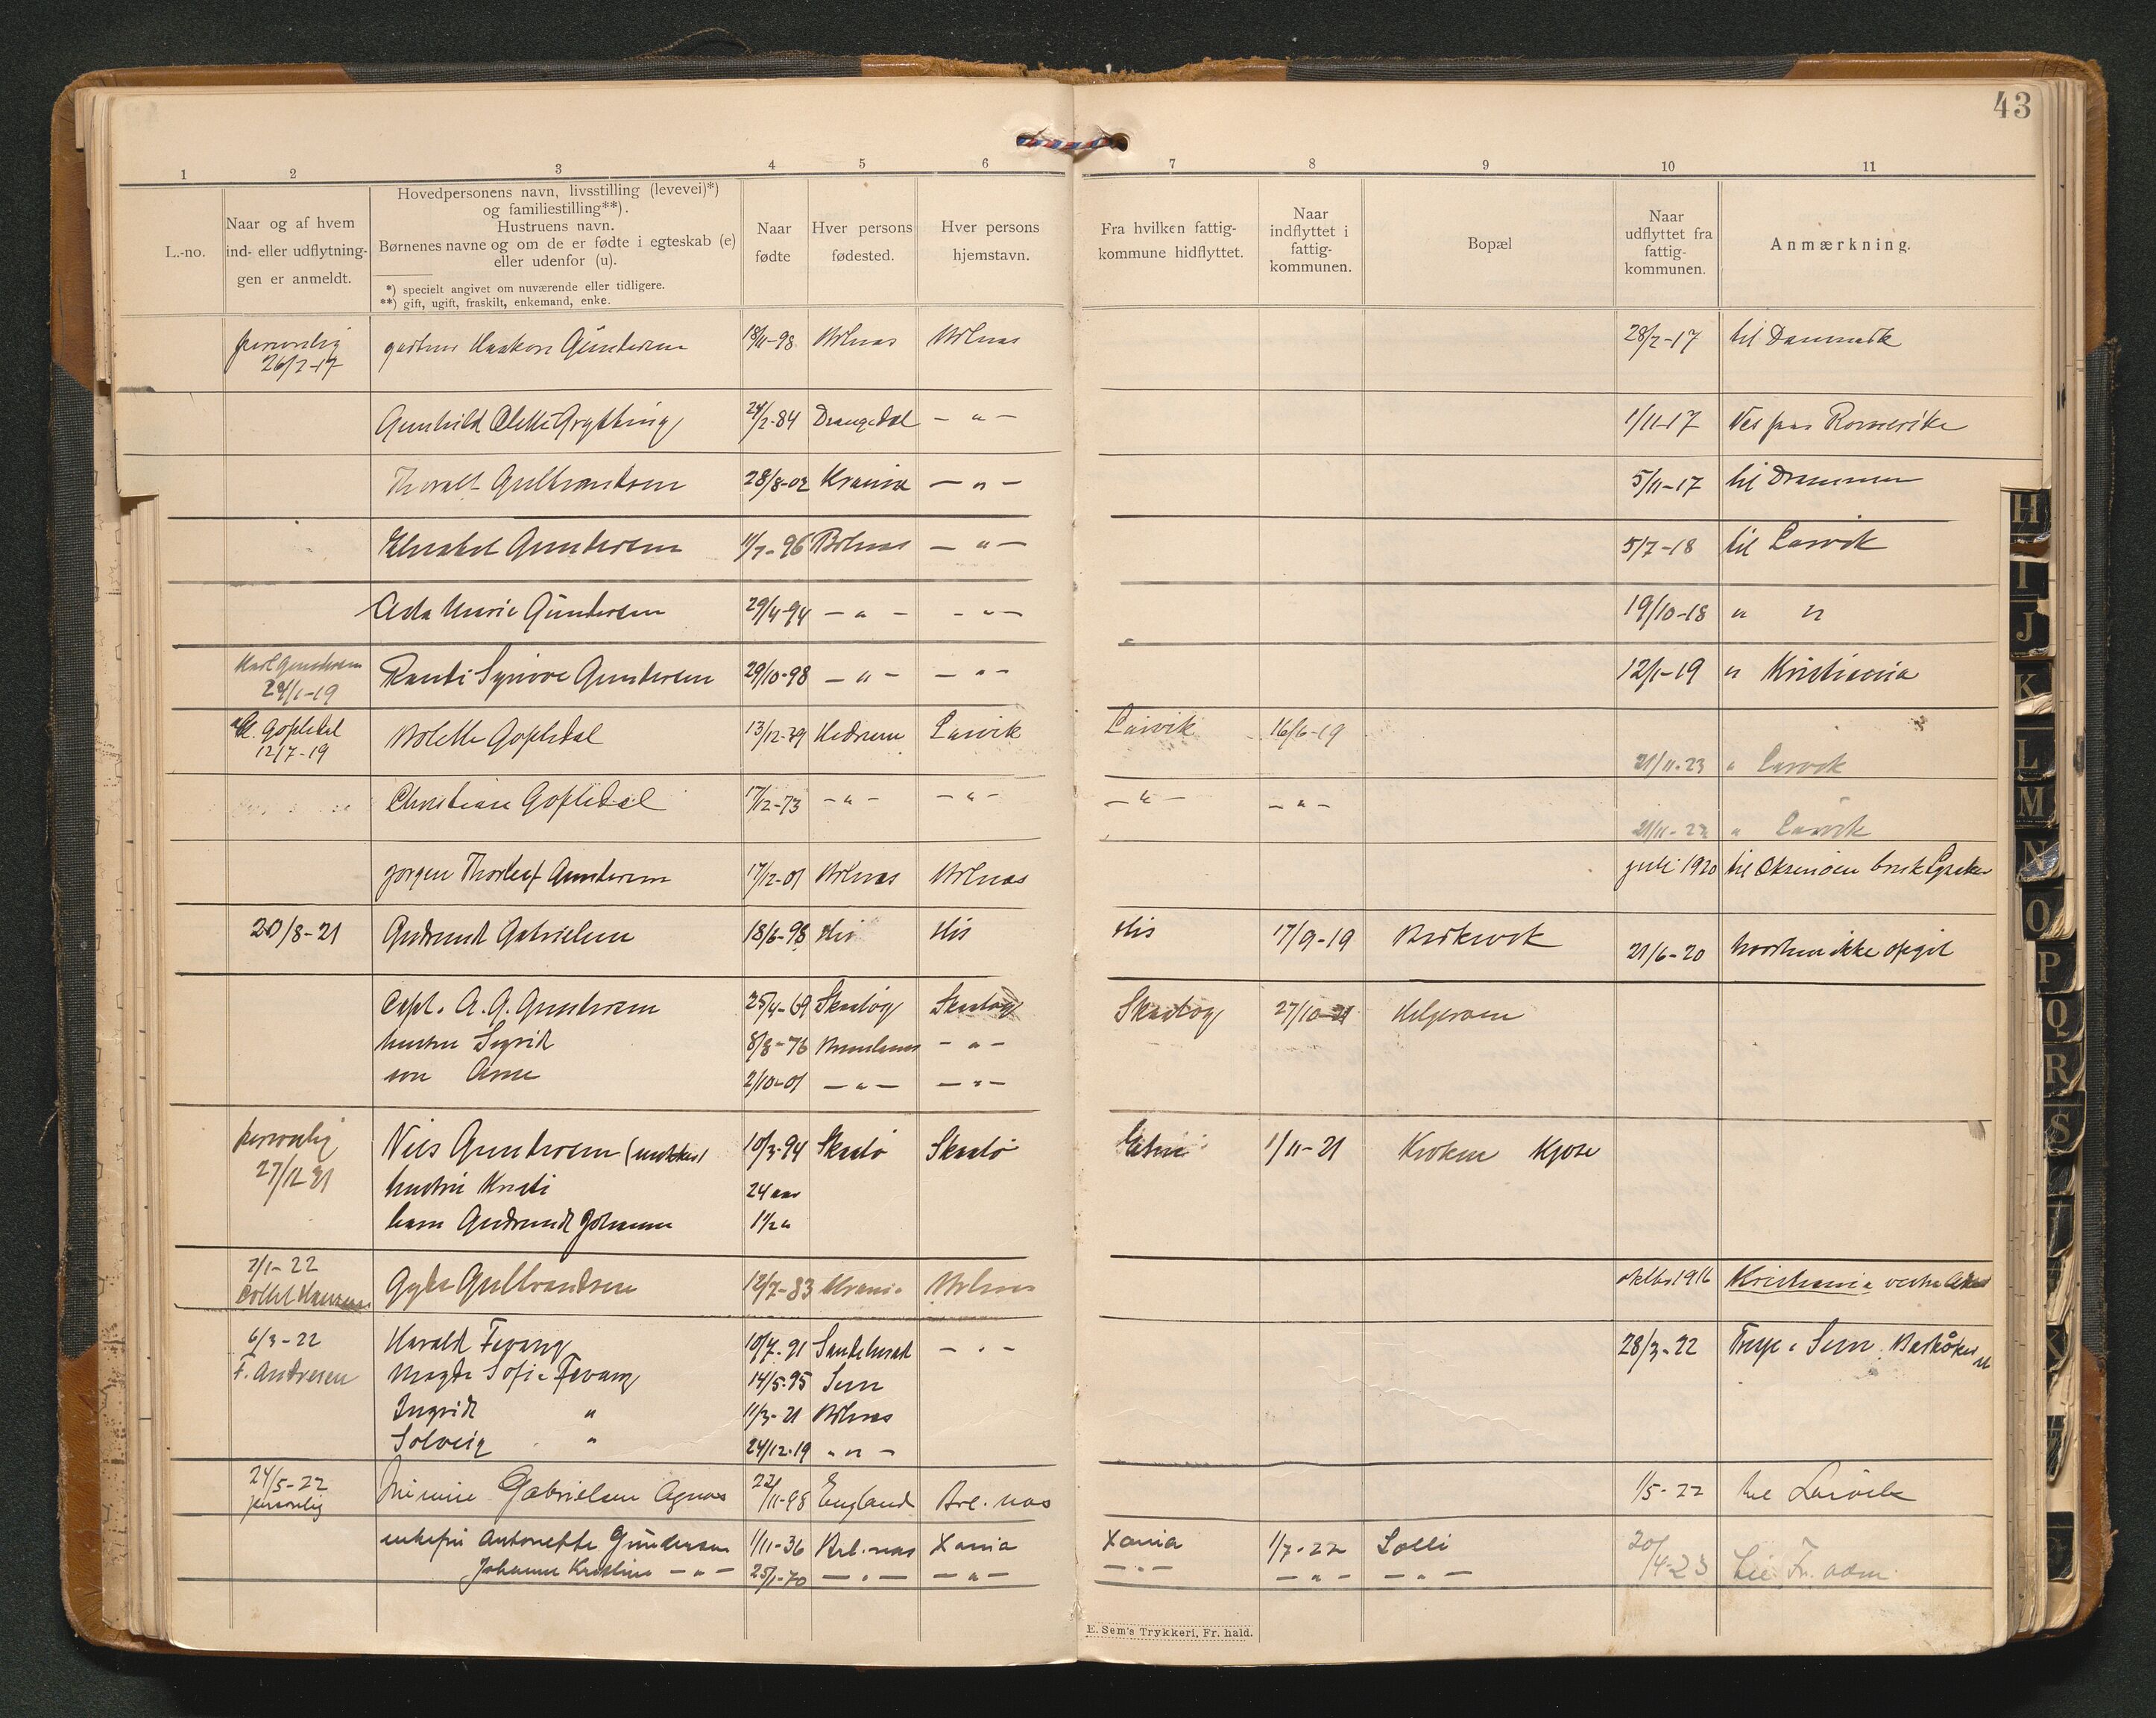 43
1 2 3 4 5 6 7 8 9 10 11
L.-no.
Naar og af hvem
ind- eller udflytning-
gen er anmeldt.
Hovedpersonens navn, livsstilling (levevei)*)
og familiestilling**).
Hustruens navn.
Børnenes navne og om de er fødte i egteskab (e)
eller udenfor (u).
*) specielt angivet om nuværende eller tidligere.
**) gift, ugift, fraskilt, enkemand, enke.
Naar
fødte
Hver persons
fødested.
Hver persons
hjemstavn.
Fra hvilken fattig-
kommune hidflyttet.
Naar
indflyttet i
fattig-
kommunen.
Bopæl
Naar
udflyttet fra
fattig-
kommunen.
Anmærkning.
personlig gartner Haakon Gundersen 18/11-98 Brlnæs Brlnæs 28/2-17 til Danmark
26/2-17
Gunhild Olette 24/2-84 Drangedal — " — 1/11-17 Romerike
Thoralf Gulbrandsen 28/8-02 Krania — " — 5/11-17 til Drammen
Elisabet Gundersen 11/7-96 Brlnæs — " — 5/7-18 til Larvik
Asta Marie Gundersen 29/4-94 — " — — " — 19/10-18 " "
Karl Gundersen Randi Synøve Gundersen 29/10-98 — " — — " — 12/1-19 " Kristiania
24/1-19
Gopledal Bolette Gopledal 13/12-79 Hedrum Larvik Larvik 16/6-19
12/7-19
21/11-23 " Larvik
Christian Gopledal 17/12-73 — " — — " — — " — — " —
21/11-23 " Larvik
Jørgen Thorleif Gundersen 17/12-01 Brlnæs Brlnæs juli 1920 til bruk Lysaker
20/8-21 Gudrund Gabrielsen 18/6-98 His His His 17/9-19 21/6-20 hvorhen ikke opgit
Capt. A. G. Gundersen 25/4-69 Skaatøy Skaatøy Skaatøy 27/10-21 Helgeroen
hustru Sigrid 8/8-76 — " —
søn Arne 2/10-01 — " — — " —
personlig Niels Gundersen 10/3-94 Skaatø Skaatø 1/11-21 Kroken Kjose
27/12 21
hustru Kristi 24 aar
barn Gudrund Johanne 1 1/2 "
7/1-22
Gyda Gulbrandsen 12/7-83 Krania Brlnæs oktbr 1916 Kristiania
6/3-22 Harald Fevang 10/7-91 Sandeherad — " — 28/3-22 Sem
F. Andresen Magda Sofie Fevang 14/5-95 Sem
Ingrid " 11/3-21 Brlnæs
Solveig " 24/12-19 " " —
24/5-22 Gabrielsen Agnæs 22/11-98 England Brl.næs 1/5-22 til Larvik
personlig
enkefru Antonette Gundersen 1/11-36 Brl.næs Xania Xania 1/7-22 Solli 20/4-23
Johanne Kristine — " — 25/1-70 — " — — " — — " — — " — — " —
E. Sem's Trykkeri, Fr. hald.
H
I
J
K
L
M
N
O
P
Q
R
S